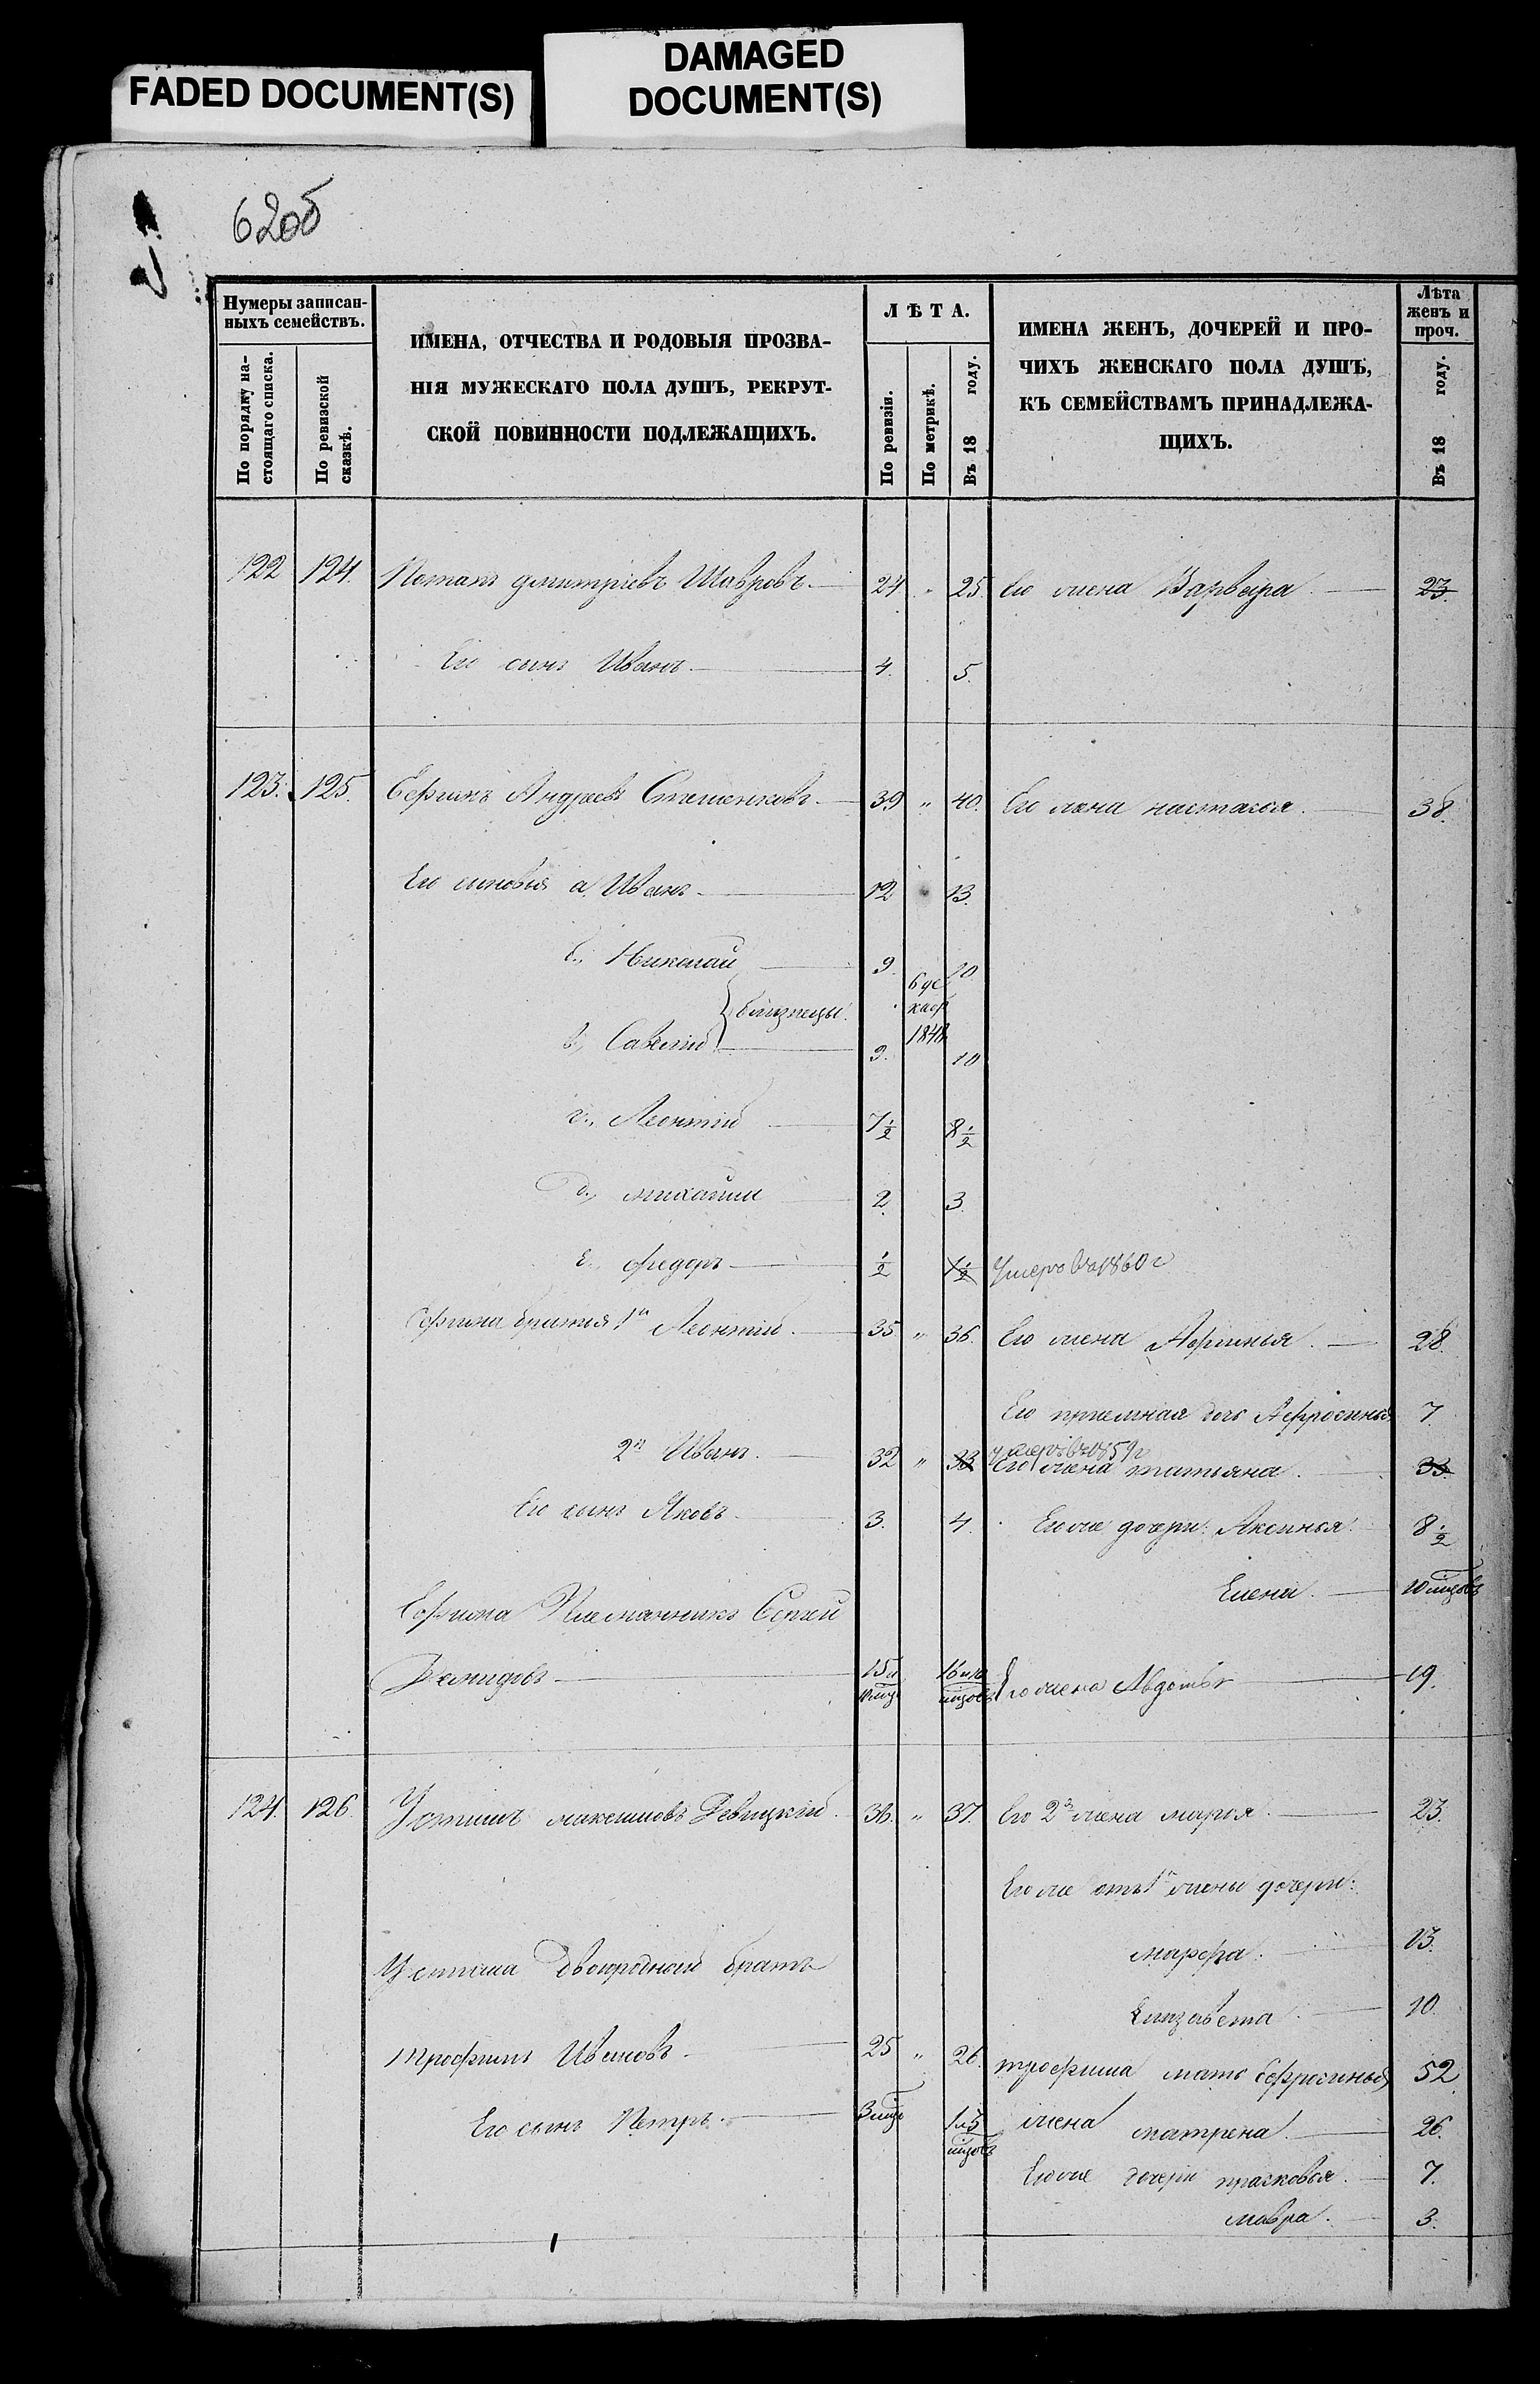 FADED DOCUMENT(S)
DAMAGED
DOCUMENT(S)
62об
Нумеры записан-
ныхъ семействъ.
По порядку на-
стоящаго списка.
По ревизской
сказкѣ.
ИМЕНА, ОТЧЕСТВА И РОДОВЫЯ ПРОЗВА-
НІЯ МУЖЕСКАГО ПОЛА ДУШЪ, РЕКРУТ-
СКОЙ ПОВИННОСТИ ПОДЛЕЖАЩИХЪ.
ЛѢТА.
По ревизіи.
По метрикѣ.
Въ 18 году.
ИМЕНА ЖЕНЪ, ДОЧЕРЕЙ И ПРО-
ЧИХЪ ЖЕНСКАГО ПОЛА ДУШЪ,
КЪ СЕМЕЙСТВАМЪ ПРИНАДЛЕЖА-
ЩИХЪ.
Лѣта
женъ и
проч.
Въ 18 году.
122 124. Потапъ дмитріевъ Шавровъ. 24 " 25. Его жена Варвара 23.
Его сынъ Иванъ. 4. 5.
123. 125. Ефимъ Андреевъ Стешенковъ. 39 " 40. Его жена настасья. 38.
Его сыновья а, Иванъ 12 13.
б., Николай 9 10.
близнецы. 6 де
кабр
1848
в., Савелій 9. 10
г., Леонтій 7½ 8½
д., михаилъ 2 3
е., федоръ ½ 1½ Умеръ въ 1860 г
Ефима братья 1й Леонтій. 35 " 36. Его жена Афимья. 28.
Его приемная дочь Афросинья 7.
2й Иванъ. 32 " 33 умеръ въ 1859 г
Его жена татьяна. 33.
Его сынъ Яковъ 3. 4. Его же дочери: Аксинья. 8½
Елена. 10 мцовъ
Ефима Племянникъ Сергей
Демидовъ 15 и
мцъ 16 и 10
мцовъ Его жена Авдотья 19.
124. 126. Устинъ максимовъ Левицкій. 36. " 37. Его 2я жена марья. 23.
Его же отъ 1й жены дочери:
марфа. 13.
Устина Двоюродный братъ
Елизавета 10.
трофимъ Ивановъ. 25 " 26. трофима мать Ефросинья 52.
Его сынъ Петръ. 3 мцъ 1 и 3
мцовъ жена матрена. 26.
Его же дочери прасковья. 7.
мавра. 3.